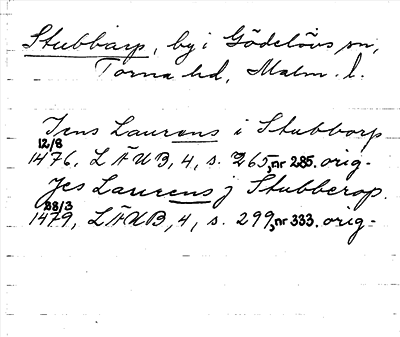 Stubbarp, by i Gödelövs sn,
Torna hd, Malm. l.
Jens Laurens i Stubborp
12/8
1476, LÄUB, 4, s. 265, nr 285. orig.
Jes Laurens j Stubberop.
28/3
1479, LÄUB, 4, s. 299, nr 333. orig.